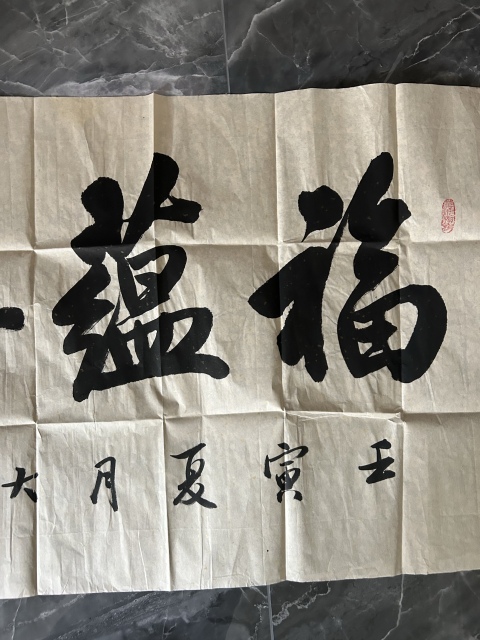 福蘊
壬寅夏月大